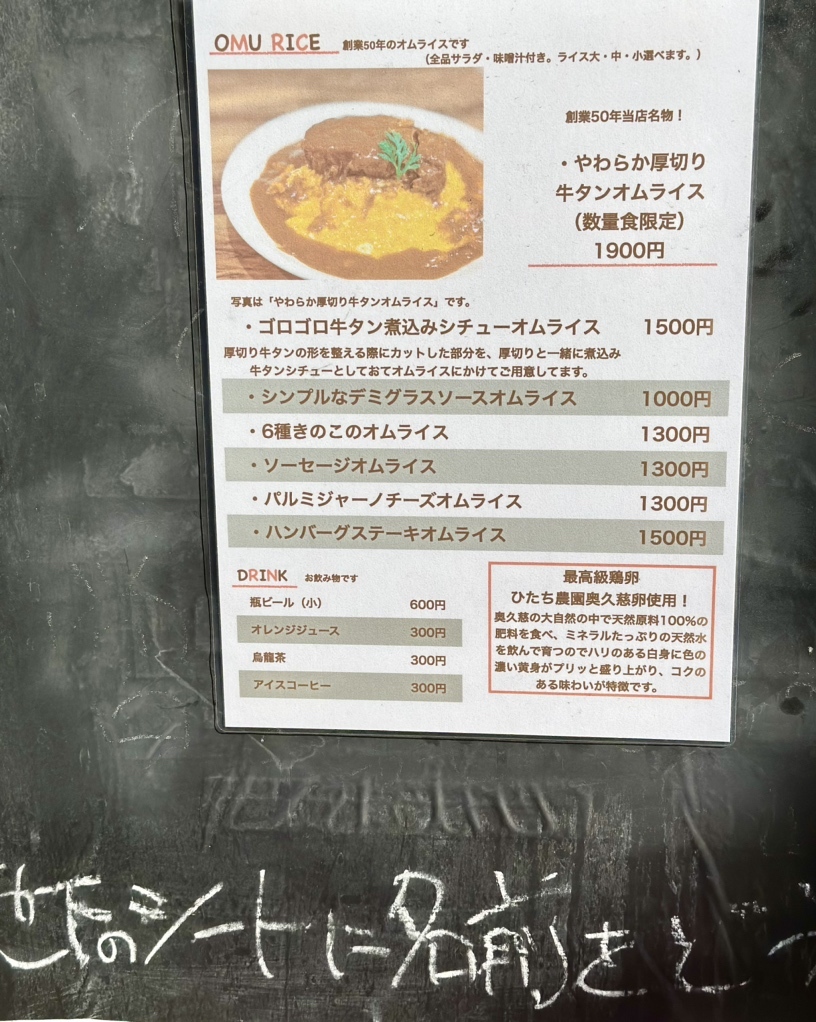 OMU RICE 創業50年のオムライスです
（全品サラダ・味噌汁付き。ライス大・中・小選べます。）
創業50年当店名物！
・やわらか厚切り
牛タンオムライス
（数量食限定）
1900円
写真は「やわらか厚切り牛タンオムライス」です。
・ゴロゴロ牛タン煮込みシチューオムライス 1500円
厚切り牛タンの形を整える際にカットした部分を、厚切りと一緒に煮込み
牛タンシチューとしておてオムライスにかけてご用意してます。
・シンプルなデミグラスソースオムライス 1000円
・6種きのこのオムライス 1300円
・ソーセージオムライス 1300円
・パルミジャーノチーズオムライス 1300円
・ハンバーグステーキオムライス 1500円
DRINK お飲み物です
瓶ビール（小） 600円
オレンジジュース 300円
烏龍茶 300円
アイスコーヒー 300円
最高級鶏卵
ひたち農園奥久慈卵使用！
奥久慈の大自然の中で天然原料100%の
肥料を食べ、ミネラルたっぷりの天然水
を飲んで育つのでハリのある白身に色の
濃い黄身がプリッと盛り上がり、コクの
ある味わいが特徴です。
のシートに名前を